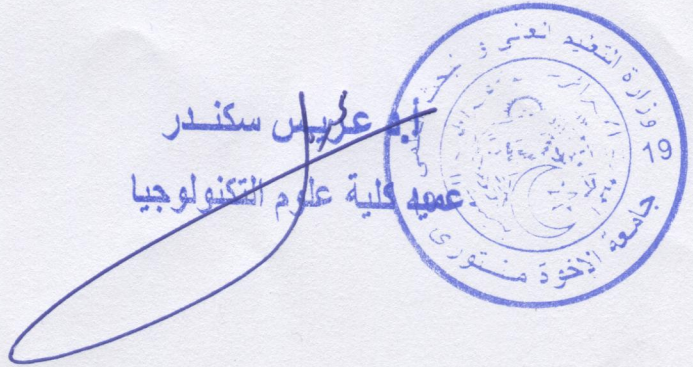 أ.د عريس سكندر
عميد كلية علوم التكنولوجيا
وزارة التعليم العالي و البحث العلمي
19
جامعة الإخوة منتوري